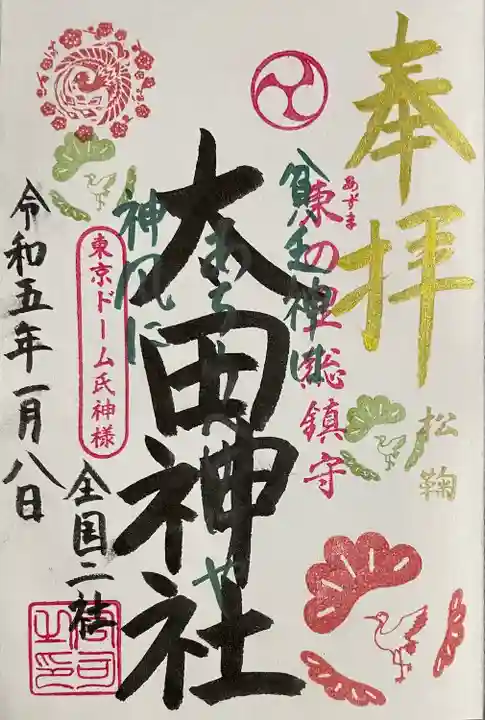 奉拝
松鞠
あずま
東の里総鎮守
貧乏神は
神風に
太田神社
東京ドーム氏神様
全国二社
令和五年一月八日